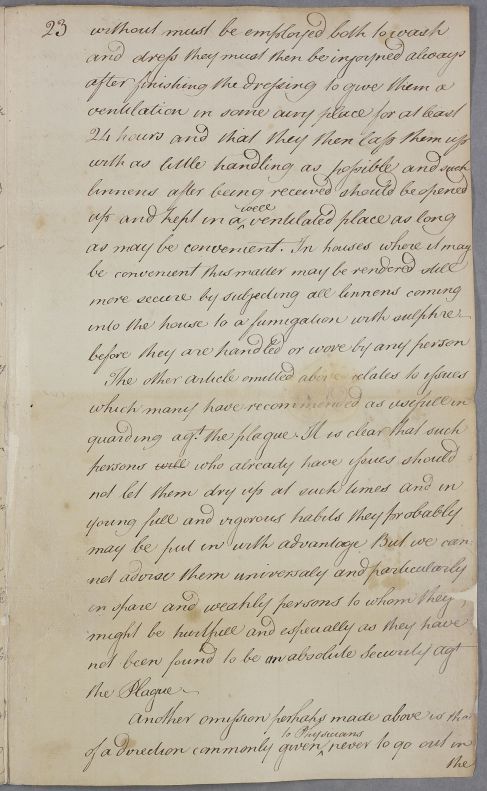 23
without must be employed both to wash
and dress they must then be injoyned always
after finishing the dressing to give them a
ventilation in some airy place for at least
24 hours and that they then lapp them up
with as little handling as possible and such
linnens after being received should be opened
up and kept in a ^well ventilated place as long
as may be convenient. In houses where it may
be convenient this matter may be rendered still
more secure by subjecting all linnens coming
into the house to a fumigation with sulphre
before they are handled or wore by any person
The other article omitted above relates to issues
which many have recommended as usefull in
guarding agt. the plague. It is clear that such
persons will who already have issues should
not let them dry up at such times and in
young full and vigorous habits they probably
may be put in with advantage But we can
not advise them universaly and particularly
in spare and weakly persons to whom they
might be hurtfull and especially as they have
not been found to be an absolute Security agt
the Plague
Another omission perhaps made above is that
of a direction commonly given ^to Physicians never to go out in
the